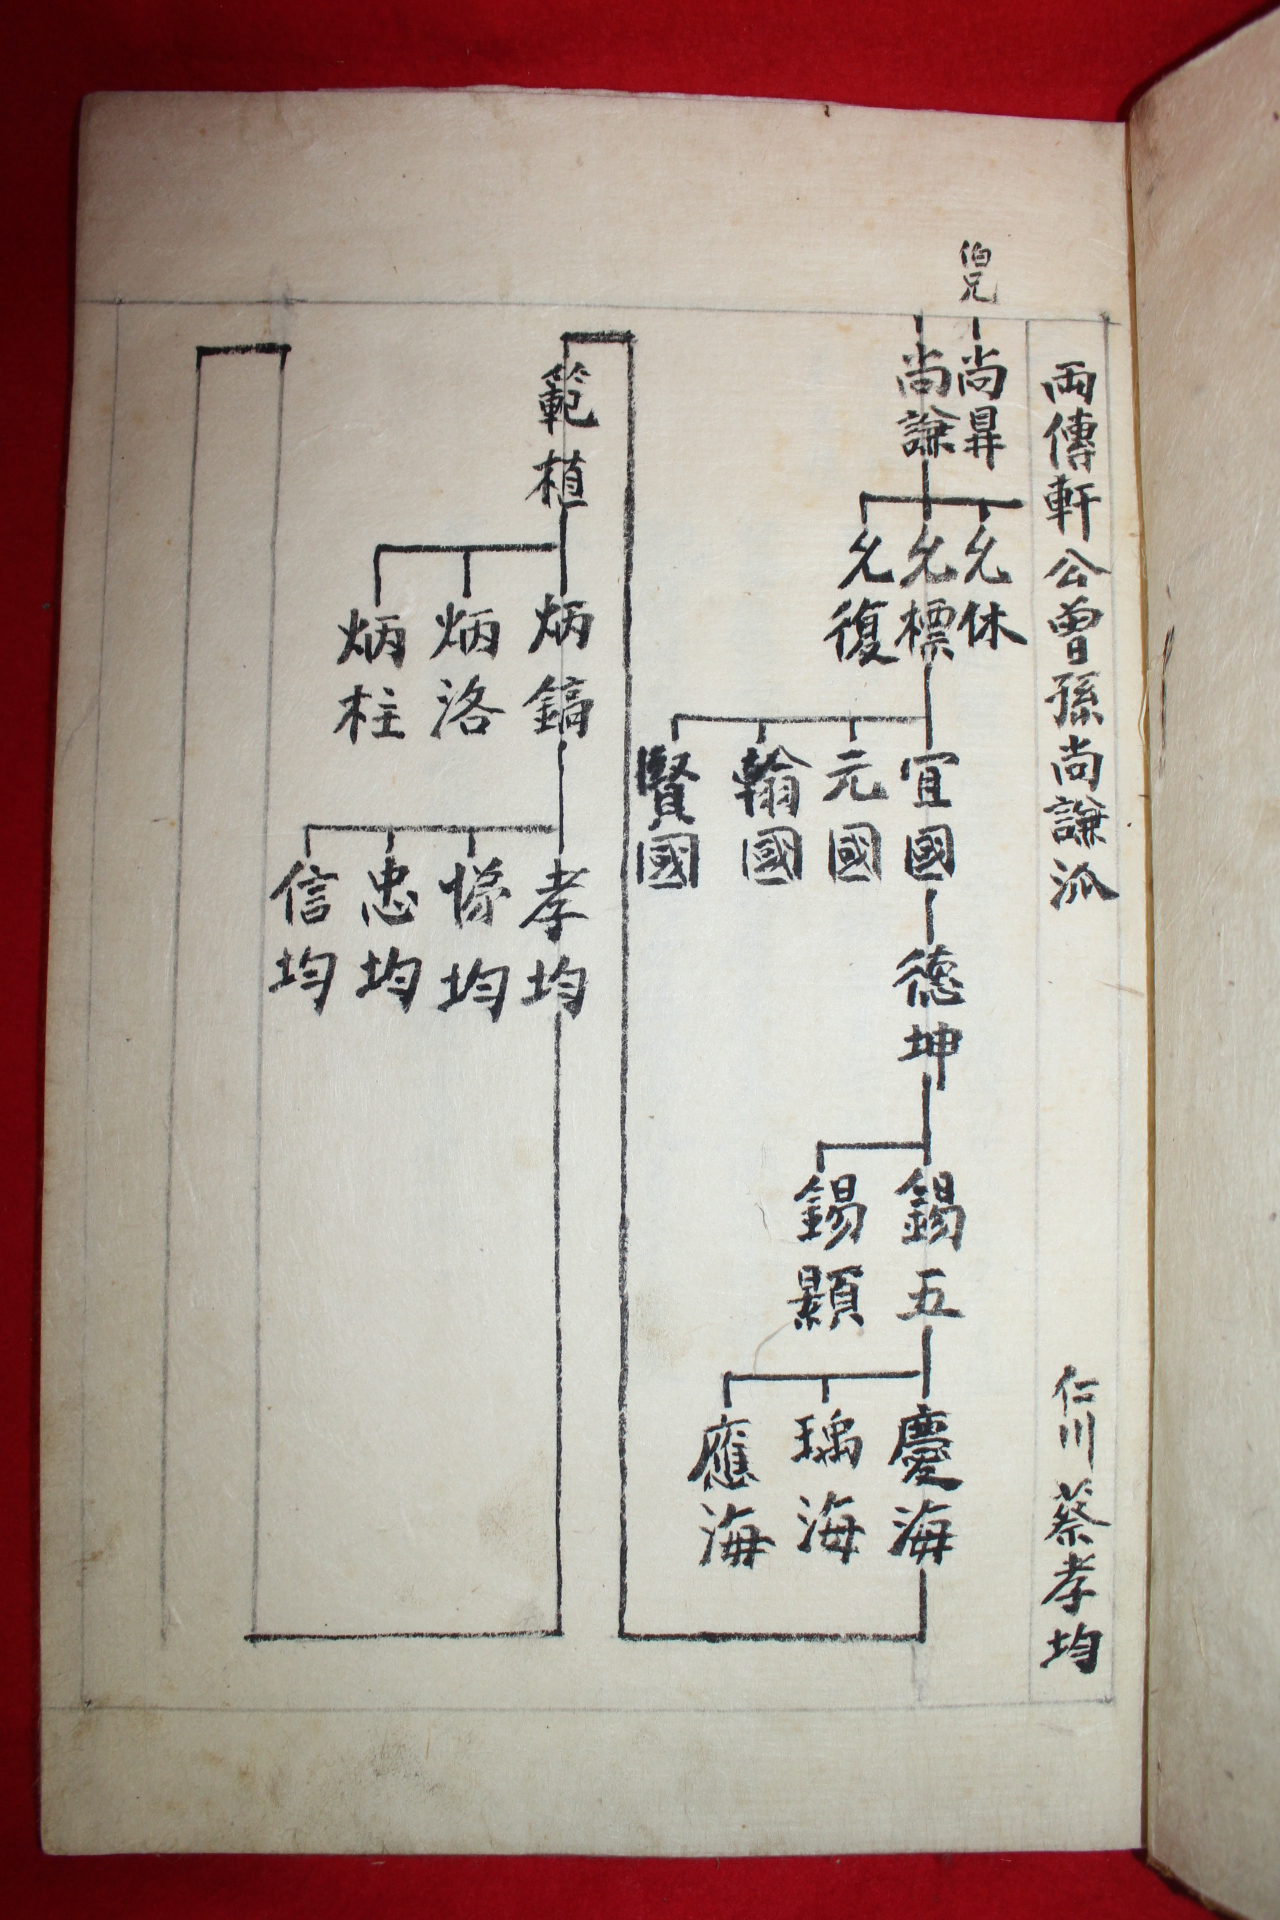 兩傳軒公曾孫尚謙派 仁川蔡孝均
伯兄
尚昇
尚謙
允休
允標
允復
宜國
元國
翰國
賢國
德坤
錫五
錫顯
慶海
瑀海
應海
範植
炳鎬
炳洛
炳柱
孝均
悌均
忠均
信均